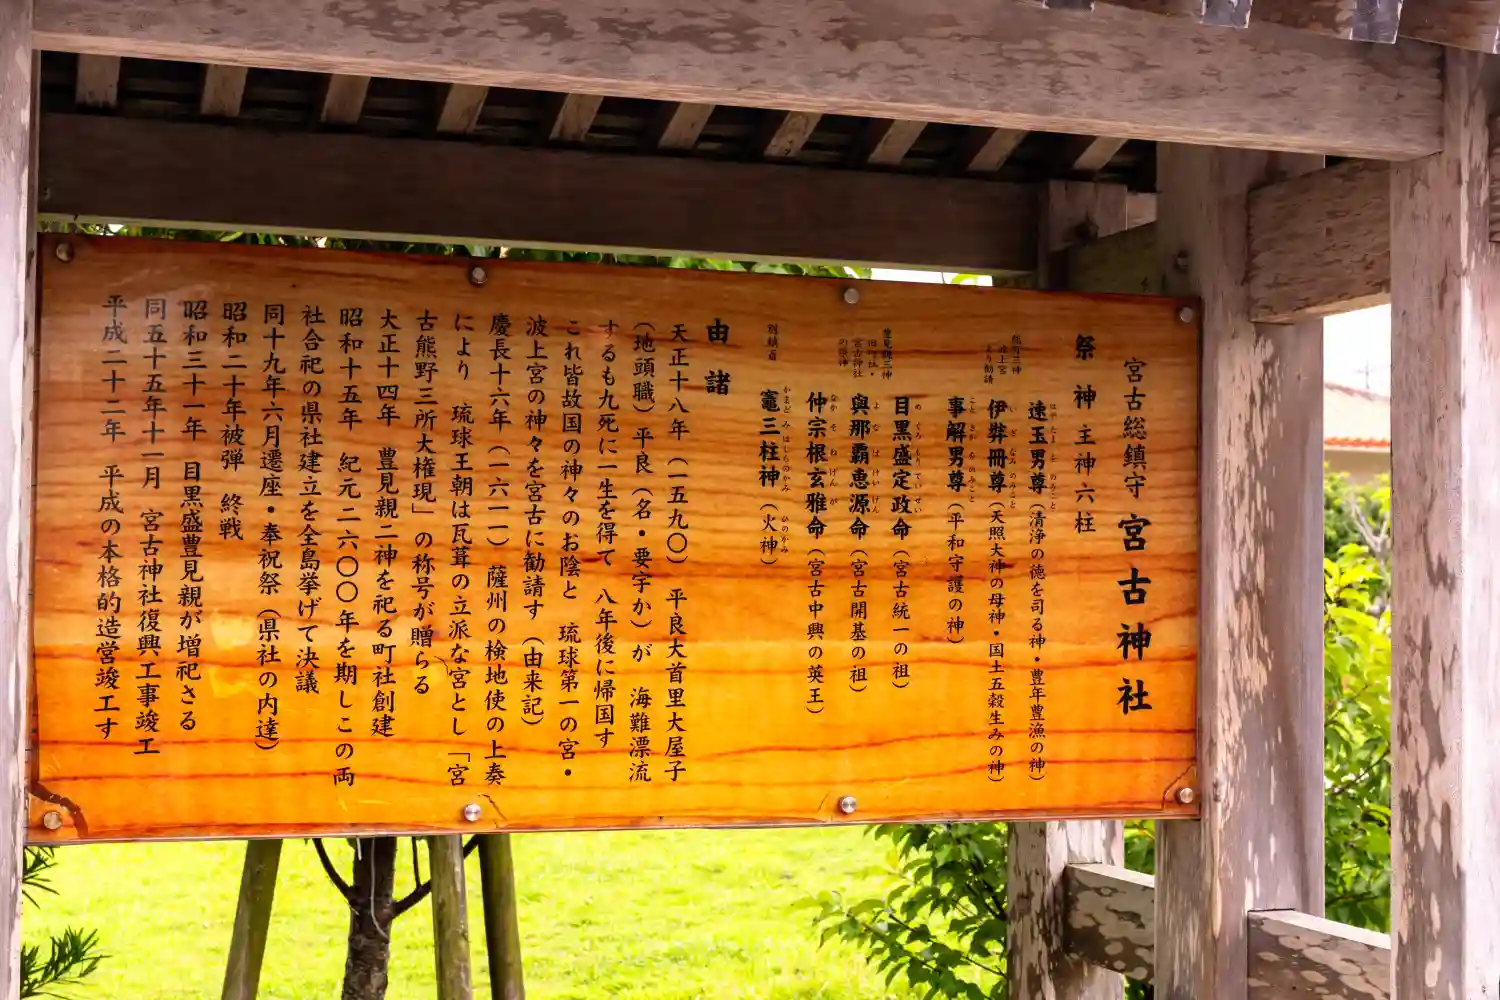 宮古総鎮守 宮古神社
祭神 主神六柱
熊野三神
波上宮
より勧請
速玉男尊（清浄の徳を司る神・豊年豊漁の神）
伊弉冊尊（天照大神の母神・国土五穀生みの神）
事解男尊（平和守護の神）
豊見親三神
旧町社・
宮古神社
の祭神
目黒盛定政命（宮古統一の祖）
與那覇恵源命（宮古開基の祖）
仲宗根玄雅命（宮古中興の英王）
別鎮斎
竈三柱神（火神）
由諸
天正十八年（一五九〇）平良大首里大屋子
（地頭職）平良（名・要字か）が 海難漂流
するも九死に一生を得て 八年後に帰国す
これ皆故国の神々のお陰と 琉球第一の宮・
波上宮の神々を宮古に勧請す（由来記）
慶長十六年（一六一一）薩州の検地使の上奏
により 琉球王朝は瓦葺の立派な宮とし「宮
古熊野三所大権現」の称号が贈らる
大正十四年 豊見親二神を祀る町社創建
昭和十五年 紀元二六〇〇年を期しこの両
社合祀の県社建立を全島挙げて決議
同十九年六月遷座・奉祝祭（県社の内達）
昭和二十年被弾 終戦
昭和三十一年 目黒盛豊見親が増祀さる
同五十五年十一月 宮古神社復興工事竣工
平成二十二年 平成の本格的造営竣工す